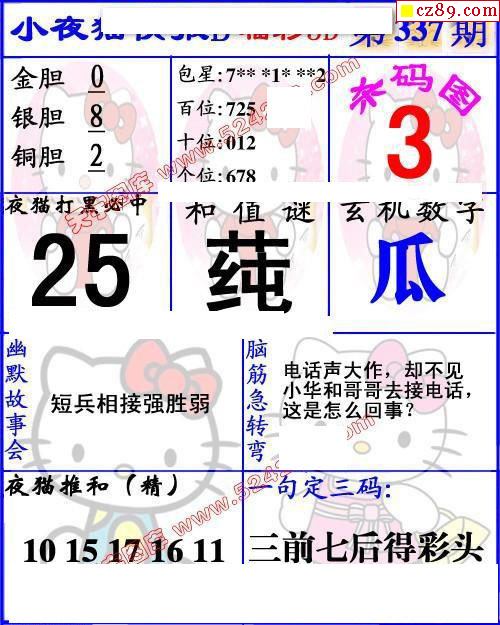 cz89.com
小夜猫
第337期
金胆 0
银胆 8
铜胆 2
包星:7** *1* **2
百位:725
十位:012
个位:678
杀码图
3
夜猫打黑必中
25
和值谜
莼
玄机数字
瓜
幽默故事会
短兵相接强胜弱
脑筋急转弯
电话声大作，却不见
小华和哥哥去接电话，
这是怎么回事？
夜猫推和（精）
10 15 17 16 11
一句定三码:
三前七后得彩头